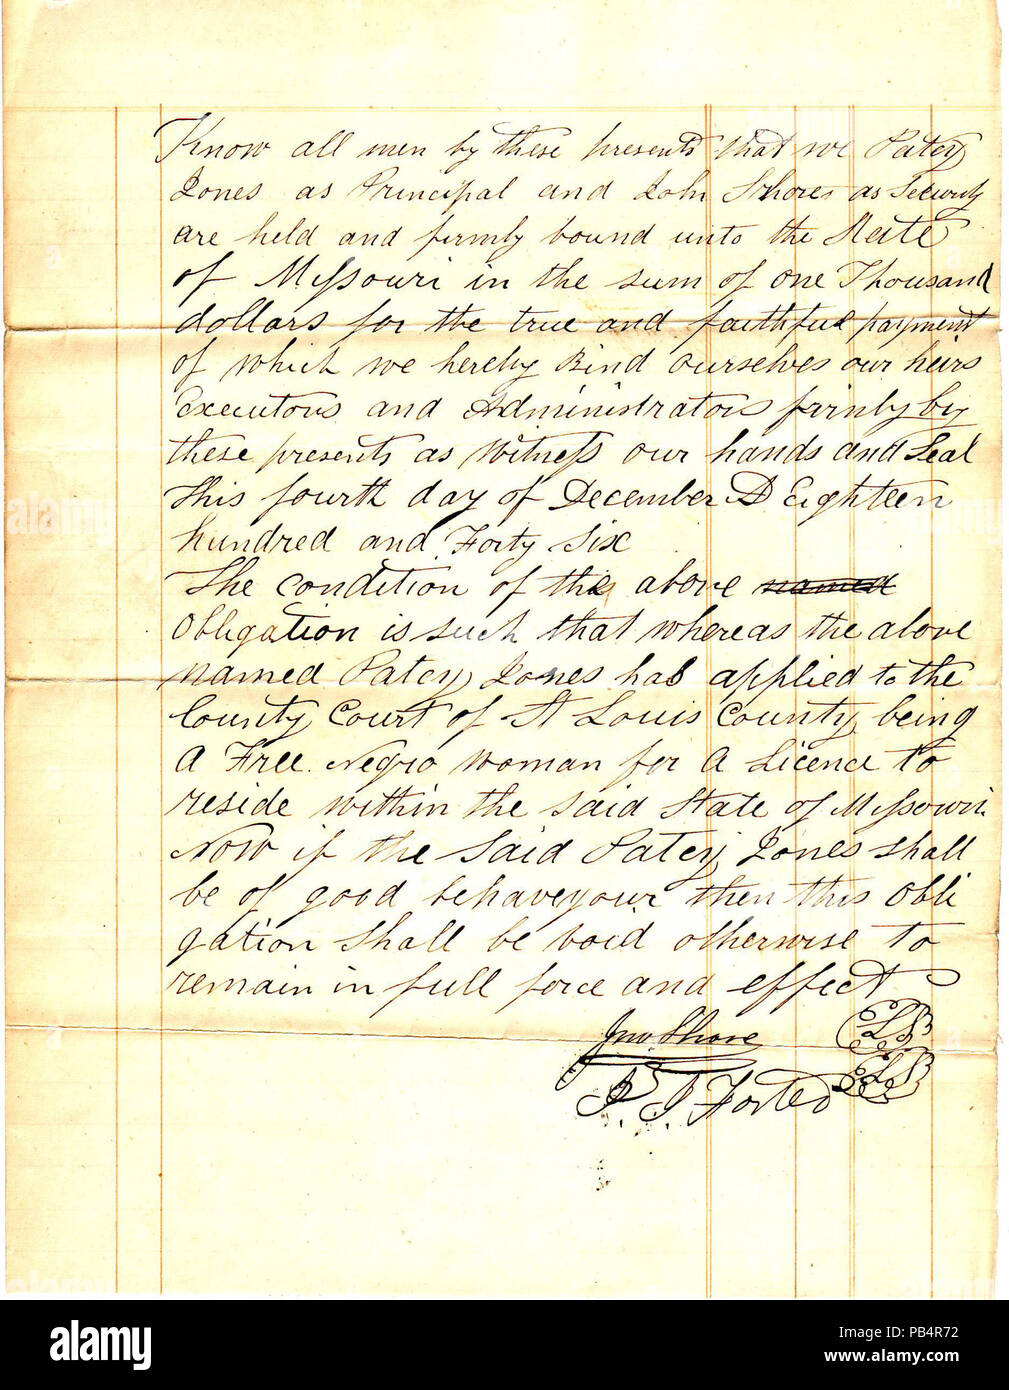 Know all men by these presents that we Patey
Jones as Principal and John Shores as Security
are held and firmly bound unto the State
of Missouri in the sum of one Thousand
dollars for the true and faithful payment
of which we hereby Bind ourselves our heirs
Executors and Administrators firmly by
these presents as Witness our hands and Seal
this fourth day of December A D Eighteen
hundred and Forty Six
The condition of the above named
Obligation is such that whereas the above
named Patey Jones has applied to the
County Court of St Louis County being
a Free Negro woman for a Licence to
reside within the said State of Missouri.
Now if the said Patey Jones shall
be of good behaveyour then this obli
gation shall be void otherwise to
remain in full force and effect
Jno Shore LS
P. J. Foster LS
alamy
alamy
a
a
alamy
Image ID: PB4R72
www.alamy.com